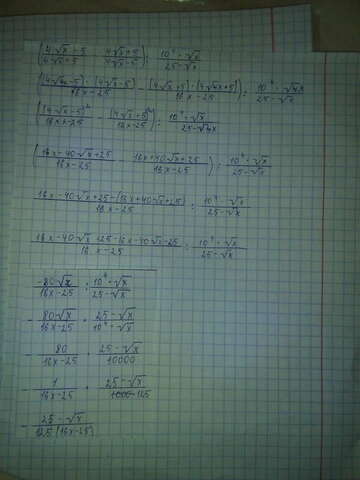 (4√x-5/4√x+5 - 4√x+5/4√x-5) : 10⁴·√x/25-√x
((4√x-5)·(4√x-5)/16x-25 - (4√x+5)·(4√x+5)/16x-25) : 10⁴·√x/25-√x
((4√x-5)²/16x-25 - (4√x+5)²/16x-25) : 10⁴·√x/25-√x
(16x-40√x+25/16x-25 - 16x+40√x+25/16x-25) : 10⁴·√x/25-√x
16x-40√x+25-(16x+40√x+25)/16x-25 : 10⁴·√x/25-√x
16x-40√x+25-16x-40√x-25/16x-25 : 10⁴·√x/25-√x
-80√x/16x-25 : 10⁴·√x/25-√x
- 80√x/16x-25 · 25-√x/10⁴·√x
- 80/16x-25 · 25-√x/10000
- 1/16x-25 · 25-√x/125
- 25-√x/125(16x-25)